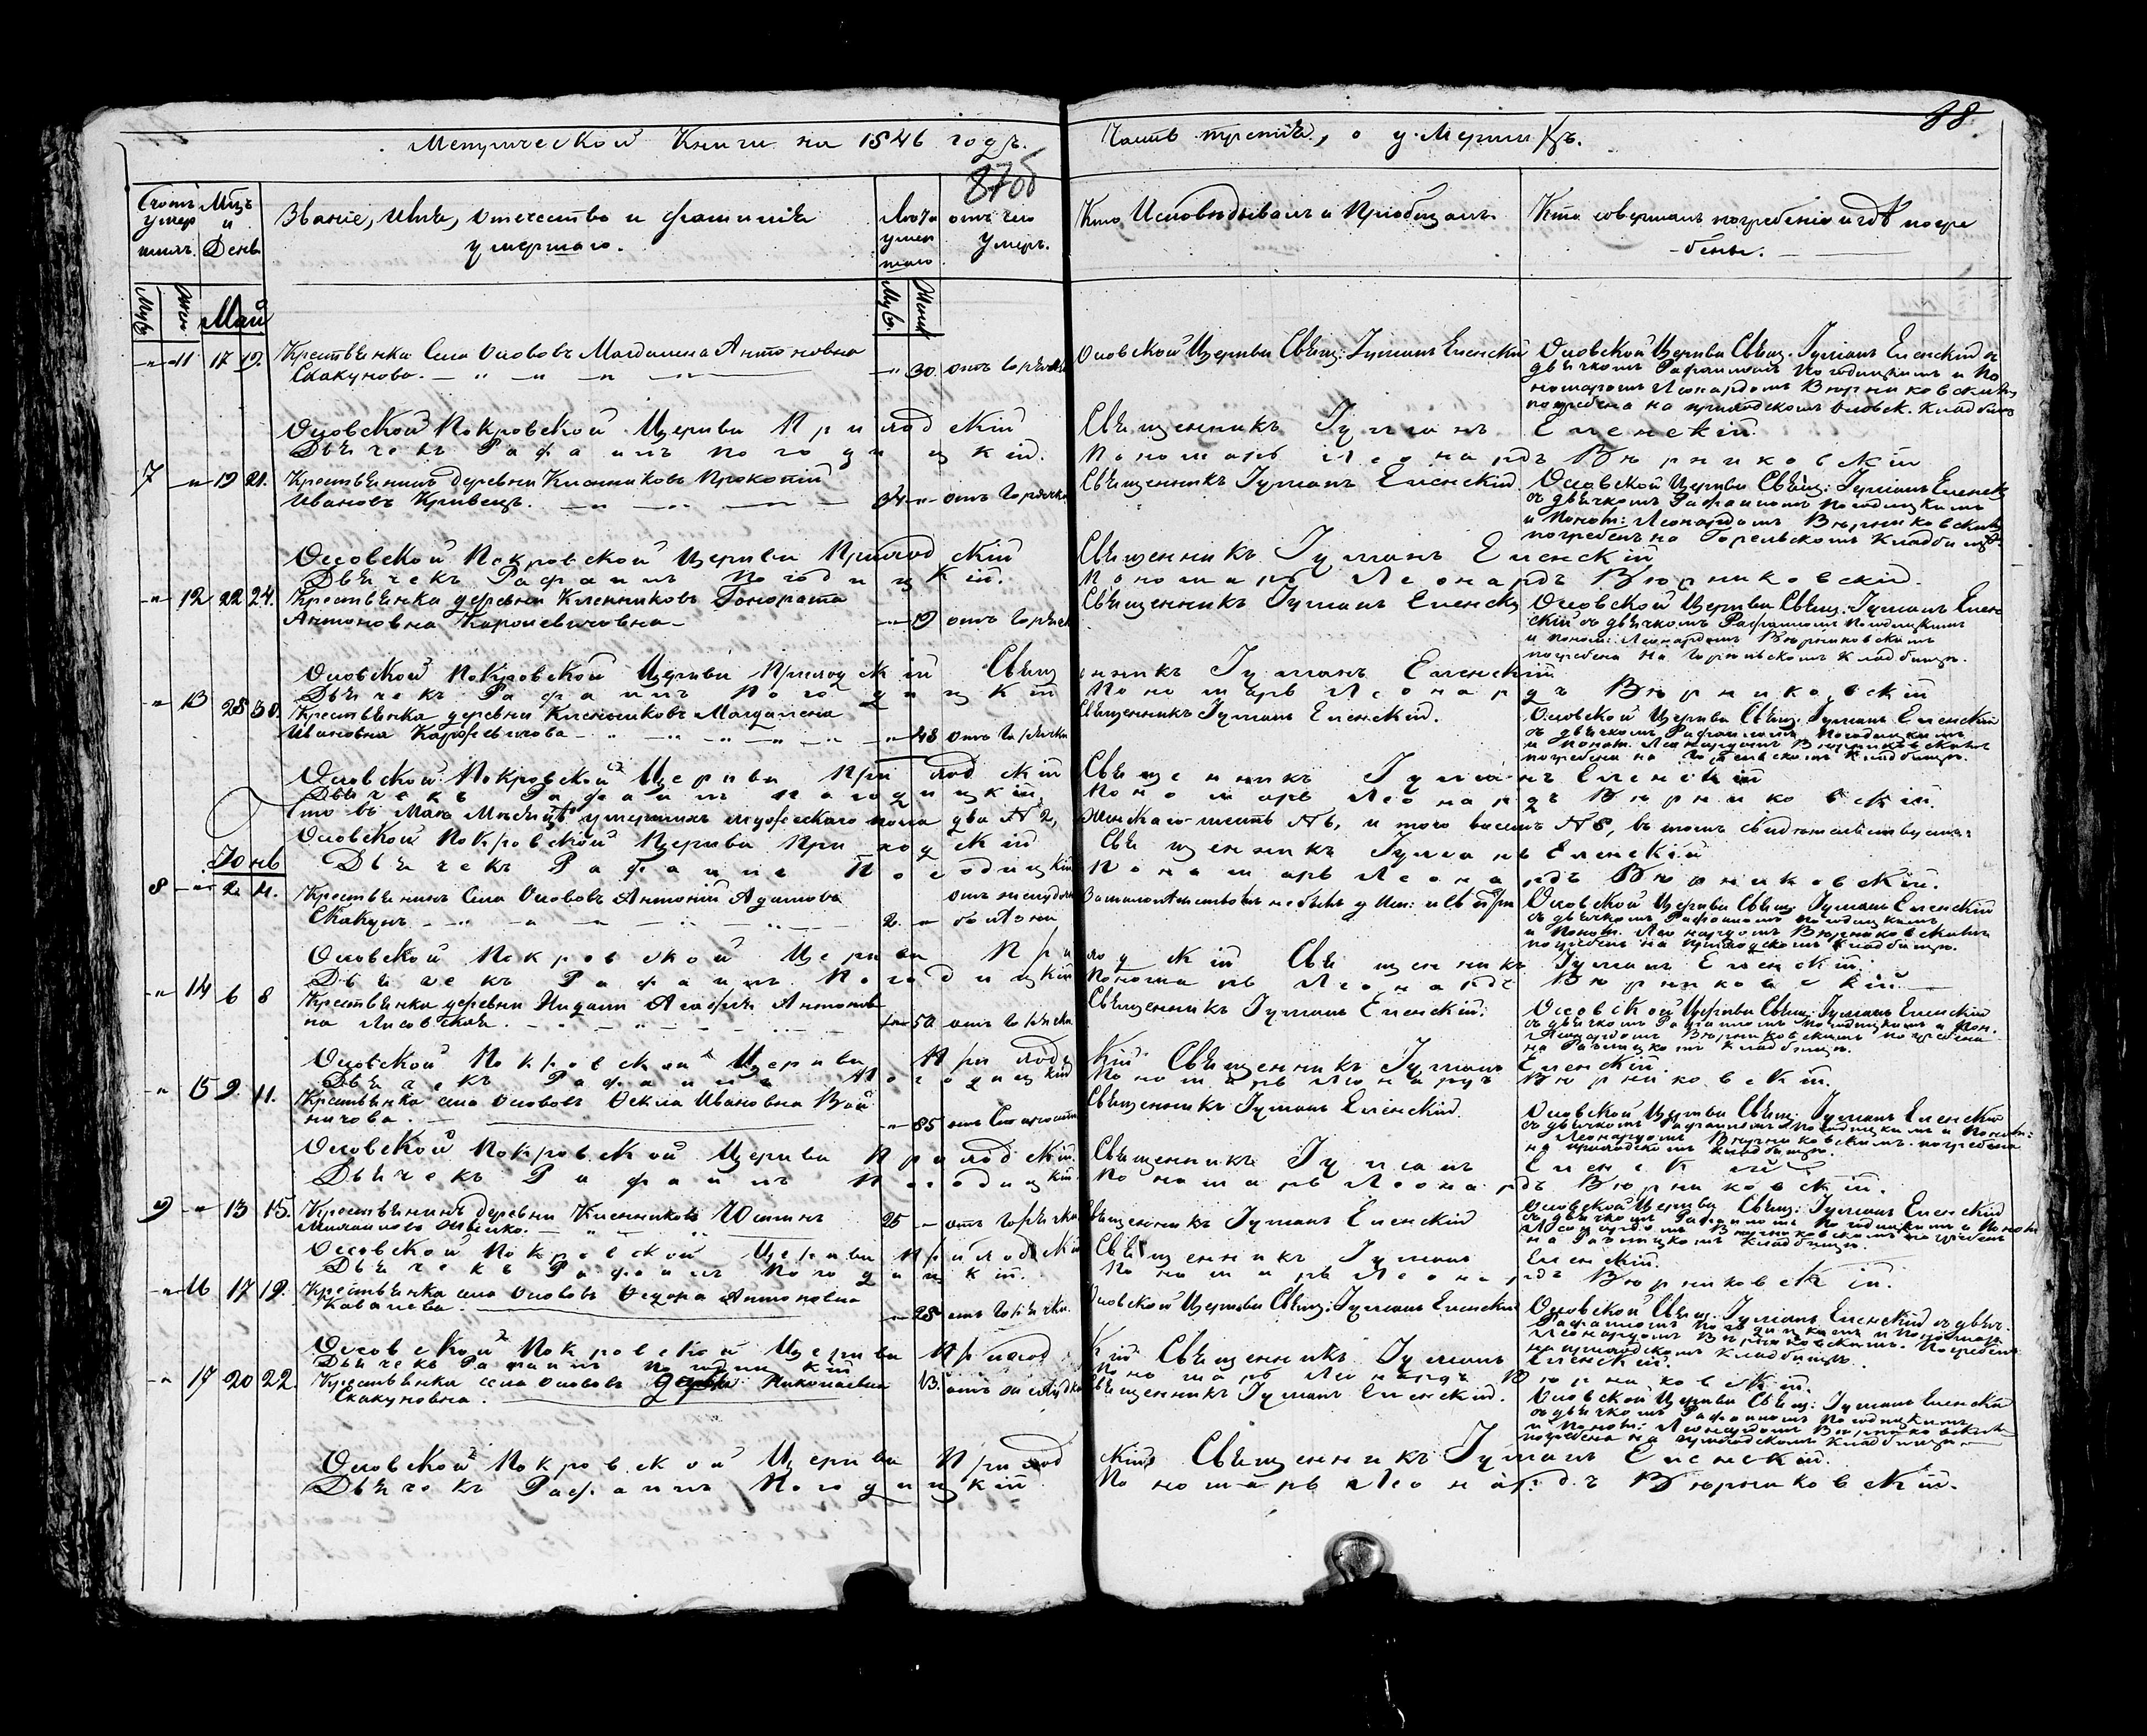 Метрической Книги на 1846 годъ.
Часть третія, о умершихъ.
88.
87об
Счотъ умер шихъ.
Мцъ и День
Званіе, имя, отечество и фамилія
умершаго.
Лѣта умер шаго
отъ чего
умеръ.
Кто Исповѣдывалъ и Пріобщалъ
Кто совершалъ погребеніе и гдѣ погре
бены.
Муж.
Жен.
Май
Муж.
Женс.
11 17 19. Крестьянка Села Осововъ Магдалена Антоновна
Скакунова.
30. отъ Горячки
Осовской Церкви Свящ: Іуліанъ Еленскій
Осовской Церкви Свящ. Іуліанъ Еленскій съ
дьячкомъ Рафаиломъ Погодицкимъ и По
номаромъ Леонардомъ Вюрниковскимъ
погребена на приходскомъ Осовск. Кладбищѣ
Осовской Покровской Церкви Приходскій Священникъ Іуліанъ Еленскій.
Дьячекъ Рафаилъ Погодицкій. Пономарь Леонардъ Вюрниковскій
7 19 21. Крестьянинъ деревни Клетниковъ Прокопій
Ивановъ Кривецъ.
34. отъ Горячки
Священникъ Іуліанъ Еленскій.
Осовской Церкви Свящ: Іуліанъ Еленск
съ дьячкомъ Рафаиломъ Погодицкимъ
и Поном: Леонардомъ Вюрниковскимъ
погребенъ на Горельскомъ Кладбищѣ
Осовской Покровской Церкви Приходскій Священникъ Іуліанъ Еленскій
Дьячекъ Рафаилъ Погодицкій. Пономарь Леонардъ Вюрниковскій.
12 22 24. Крестьянка деревни Клетниковъ Гонората
Антоновна Каролевичовна
19 отъ Горячк
Священникъ Іуліанъ Еленскі
Осовской Церкви Свящ: Іуліанъ Елен
скій съ дьячкомъ Рафаиломъ Погодицкимъ
и поном: Леонардомъ Вюрниковскимъ
погребена на Горельскомъ Кладбищѣ.
Осовской Покровской Церкви Приходскій Священникъ Іуліанъ Еленскій
Дьячекъ Рафаилъ Погодицкій Пономарь Леонардъ Вюрниковскій
13 28 30. Крестьянка деревни Клетниковъ Магдалена
Ивановна
48 отъ Горячки
Священникъ Іуліанъ Еленскій.
Осовской Церкви Свящ. Іуліанъ Еленскій
съ дьячкомъ Рафаиломъ Погодицкимъ
и поном. Леонардомъ Вюрниковскимъ
погребена на Горельскомъ Кладбищѣ.
Осовской Покровской Церкви Приходскій Священникъ Іуліанъ Еленскій
Дьячекъ Рафаилъ Погодицкій Пономарь Леонардъ Вюрниковскій.
Что въ Маѣ Мѣсяцѣ умершихъ мужескаго пола два № 2, женскаго шесть № 6, и того восемь № 8, въ томъ свидѣтельствуемъ:
Осовской Покровской Церкви Приходскій Священникъ Іуліанъ Еленскій
Дьячекъ Рафаилъ Погодицкій Пономарь Леонардъ Вюрниковскій.
Юнь
8 2 4. Крестьянинъ Села Осововъ Антоній Адамовъ
Скакунъ.
2.
Осовской Церкви Свящ. Іуліанъ Еленскій
съ дьячкомъ Рафаиломъ Погодицкимъ
и Поном. Леонардомъ Вюрниковскимъ
погребенъ на приходскомъ Кладбищѣ.
Осовской Покровской Церкви Приходскій Священникъ Іуліанъ Еленскій.
Дьячекъ Рафаилъ Погодицкій Пономарь Леонардъ Вюрниковскій
14 6 8 Крестьянка деревни Агафія Антонов
на Лисовская.
50. отъ Горячки
Священникъ Іуліанъ Еленскій.
Осовской Церкви Свящ: Іуліанъ Еленскій
съ дьячкомъ Рафаиломъ Погодицкимъ и Пон.
Леонардомъ Вюрниковскимъ погребена
на Кладбищѣ.
Осовской Покровской Церкви Приходскій Священникъ Іуліанъ Еленскій.
Дьячекъ Рафаилъ Погодицкій Пономарь Леонардъ Вюрниковскій.
15 9. 11. Крестьянка села Осововъ Ѳекла Ивановна Вой
ничова.
85 отъ Старости
Священникъ Іуліанъ Еленскій.
Осовской Церкви Свящ: Іуліанъ Еленскій
съ дьячкомъ Рафаиломъ Погодицкимъ и Поном:
Леонардомъ Вюрниковскимъ погребена
на приходскомъ Кладбищѣ.
Осовской Покровской Церкви Приходскій. Священникъ Іуліанъ Еленскій
Дьячекъ Рафаилъ Погодицкій. Пономарь Леонардъ Вюрниковскій.
9 13 15. Крестьянинъ деревни Клетниковъ Юстинъ
25 отъ Горячки
Священникъ Іуліанъ Еленскій
Осовской Церкви Свящ: Іуліанъ Еленскій
съ дьячкомъ Рафаиломъ Погодицкимъ и Поном
Леонардомъ Вюрниковскимъ погребенъ
на Кладбищѣ.
Осовской Покровской Церкви Приходскій Священникъ Іуліанъ Еленскій.
Дьячекъ Рафаилъ Погодицкій. Пономарь Леонардъ Вюрниковскій.
16 17 19. Крестьянка села Осововъ Ѳедора Антоновна
Ковалева.
28 отъ Горячки.
Осовской Церкви Свящ: Іуліанъ Еленскій
Осовской Свящ. Іуліанъ Еленскій съ дьяч.
Рафаиломъ Погодицкимъ и Пономар.
Леонардомъ Вюрниковскимъ. Погребена
на приходскомъ Кладбищѣ.
Осовской Покровской Церкви Приходскій Священникъ Іуліанъ Еленскій.
Дьячекъ Рафаилъ Погодицкій Пономарь Леонардъ Вюрниковскій.
17 20 22. Крестьянка села Осововъ Николаевна
Скакуновна.
13.
Священникъ Іуліанъ Еленскій.
Осовской Церкви Свящ: Іуліанъ Еленскій
съ дьячкомъ Рафаиломъ Погодицкимъ
и Поном: Леонардомъ Вюрниковским
погребена на приходскомъ Кладбищѣ.
Осовской Покровской Церкви Приходскій Священникъ Іуліанъ Еленскій.
Дьячекъ Рафаилъ Погодицкій Пономарь Леонардъ Вюрниковскій.